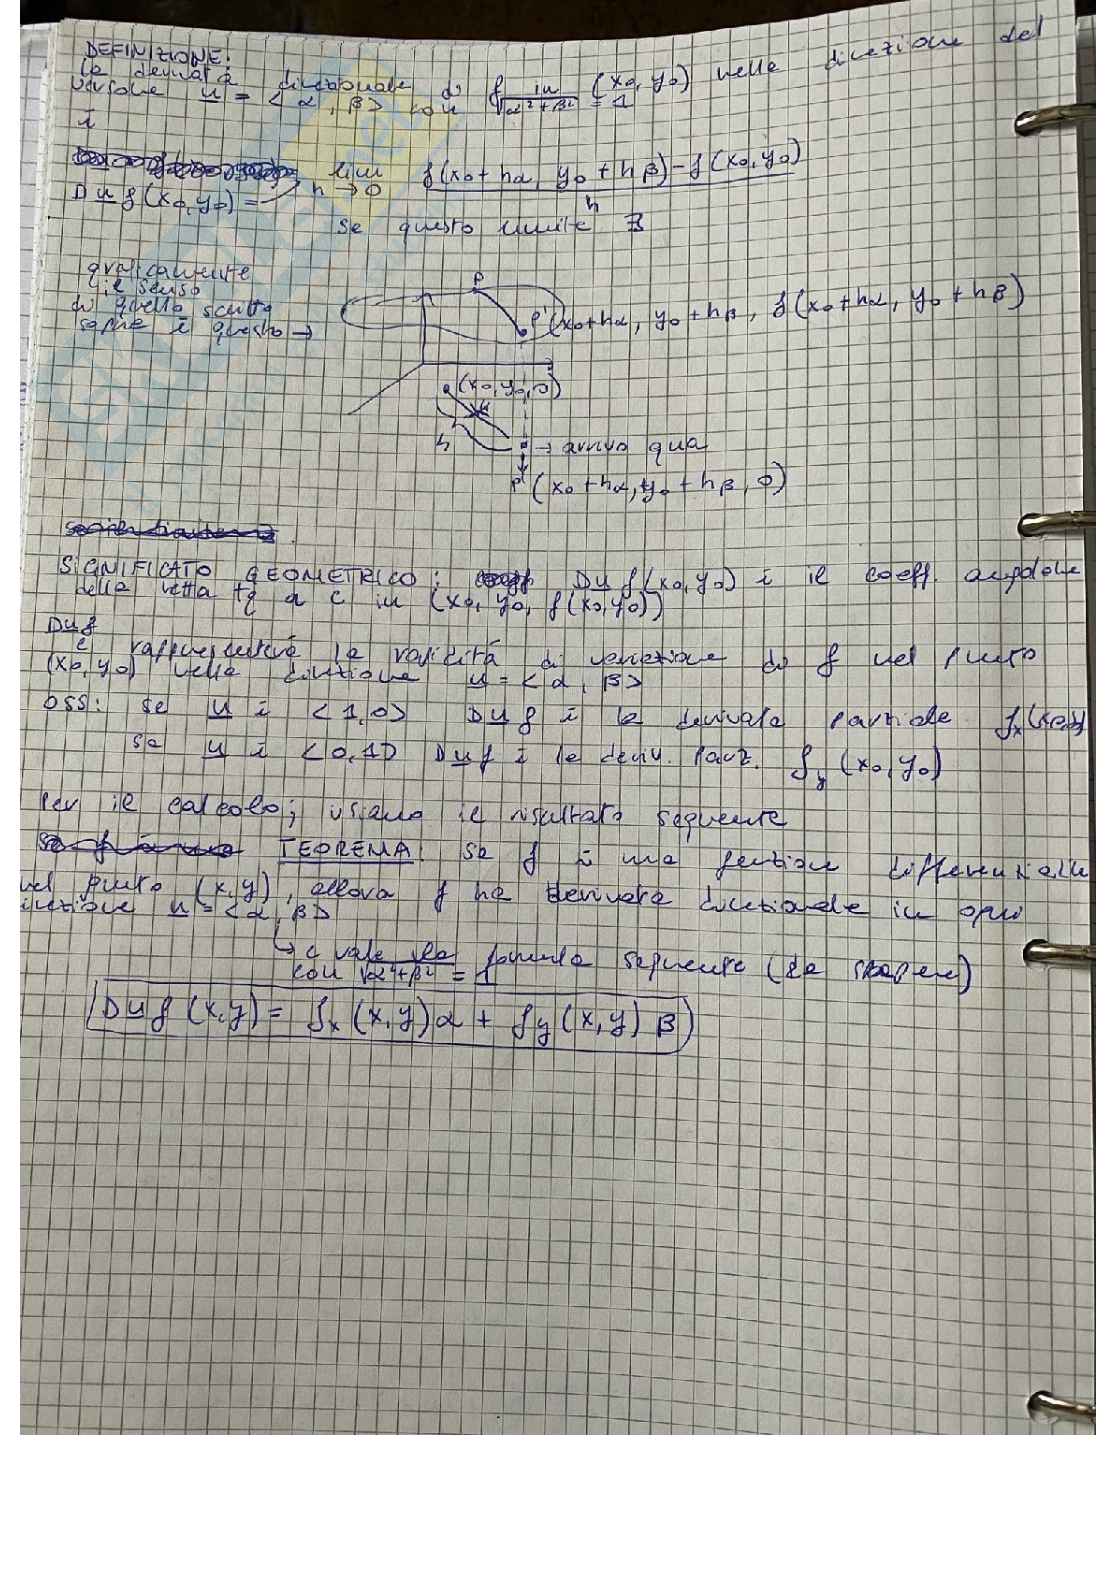 DEFINIZIONE:
la derivata direzionale di f in (x₀, y₀) nella direzione del
versore u = < α, β > con √α²+β² = 1
è
Du f(x₀,y₀) = lim h→0 f(x₀+hα, y₀+hβ)-f(x₀,y₀) / h
se questo limite ∃
graficamente
il senso
di quello scritto
sopra è questo →
P
P'(x₀+hα, y₀+hβ, f(x₀+hα, y₀+hβ)
(x₀,y₀,0)
u
h
→ arrivo qua
P' (x₀+hα, y₀+hβ, 0)
SIGNIFICATO GEOMETRICO: Du f(x₀,y₀) è il coeff. angolare
della retta tg a C in (x₀, y₀, f(x₀,y₀))
Du f
e rappresenta la rapidità di variazione di f nel punto
(x₀,y₀) nella direzione u = < α, β >
OSS: se u è <1,0> Du f è la derivata parziale fx(x₀,y₀)
se u è <0,1> Du f è la deriv. parz. fy (x₀,y₀)
Per il calcolo; usiamo il risultato seguente
TEOREMA: se f è una funzione differenziabile
nel punto (x,y), allora f ha derivata direzionale in ogni
direzione u = < α, β >
↳ e vale la formula seguente (da sapere)
con √α²+β² = 1
Du f (x,y) = fx (x,y) α + fy (x,y) β